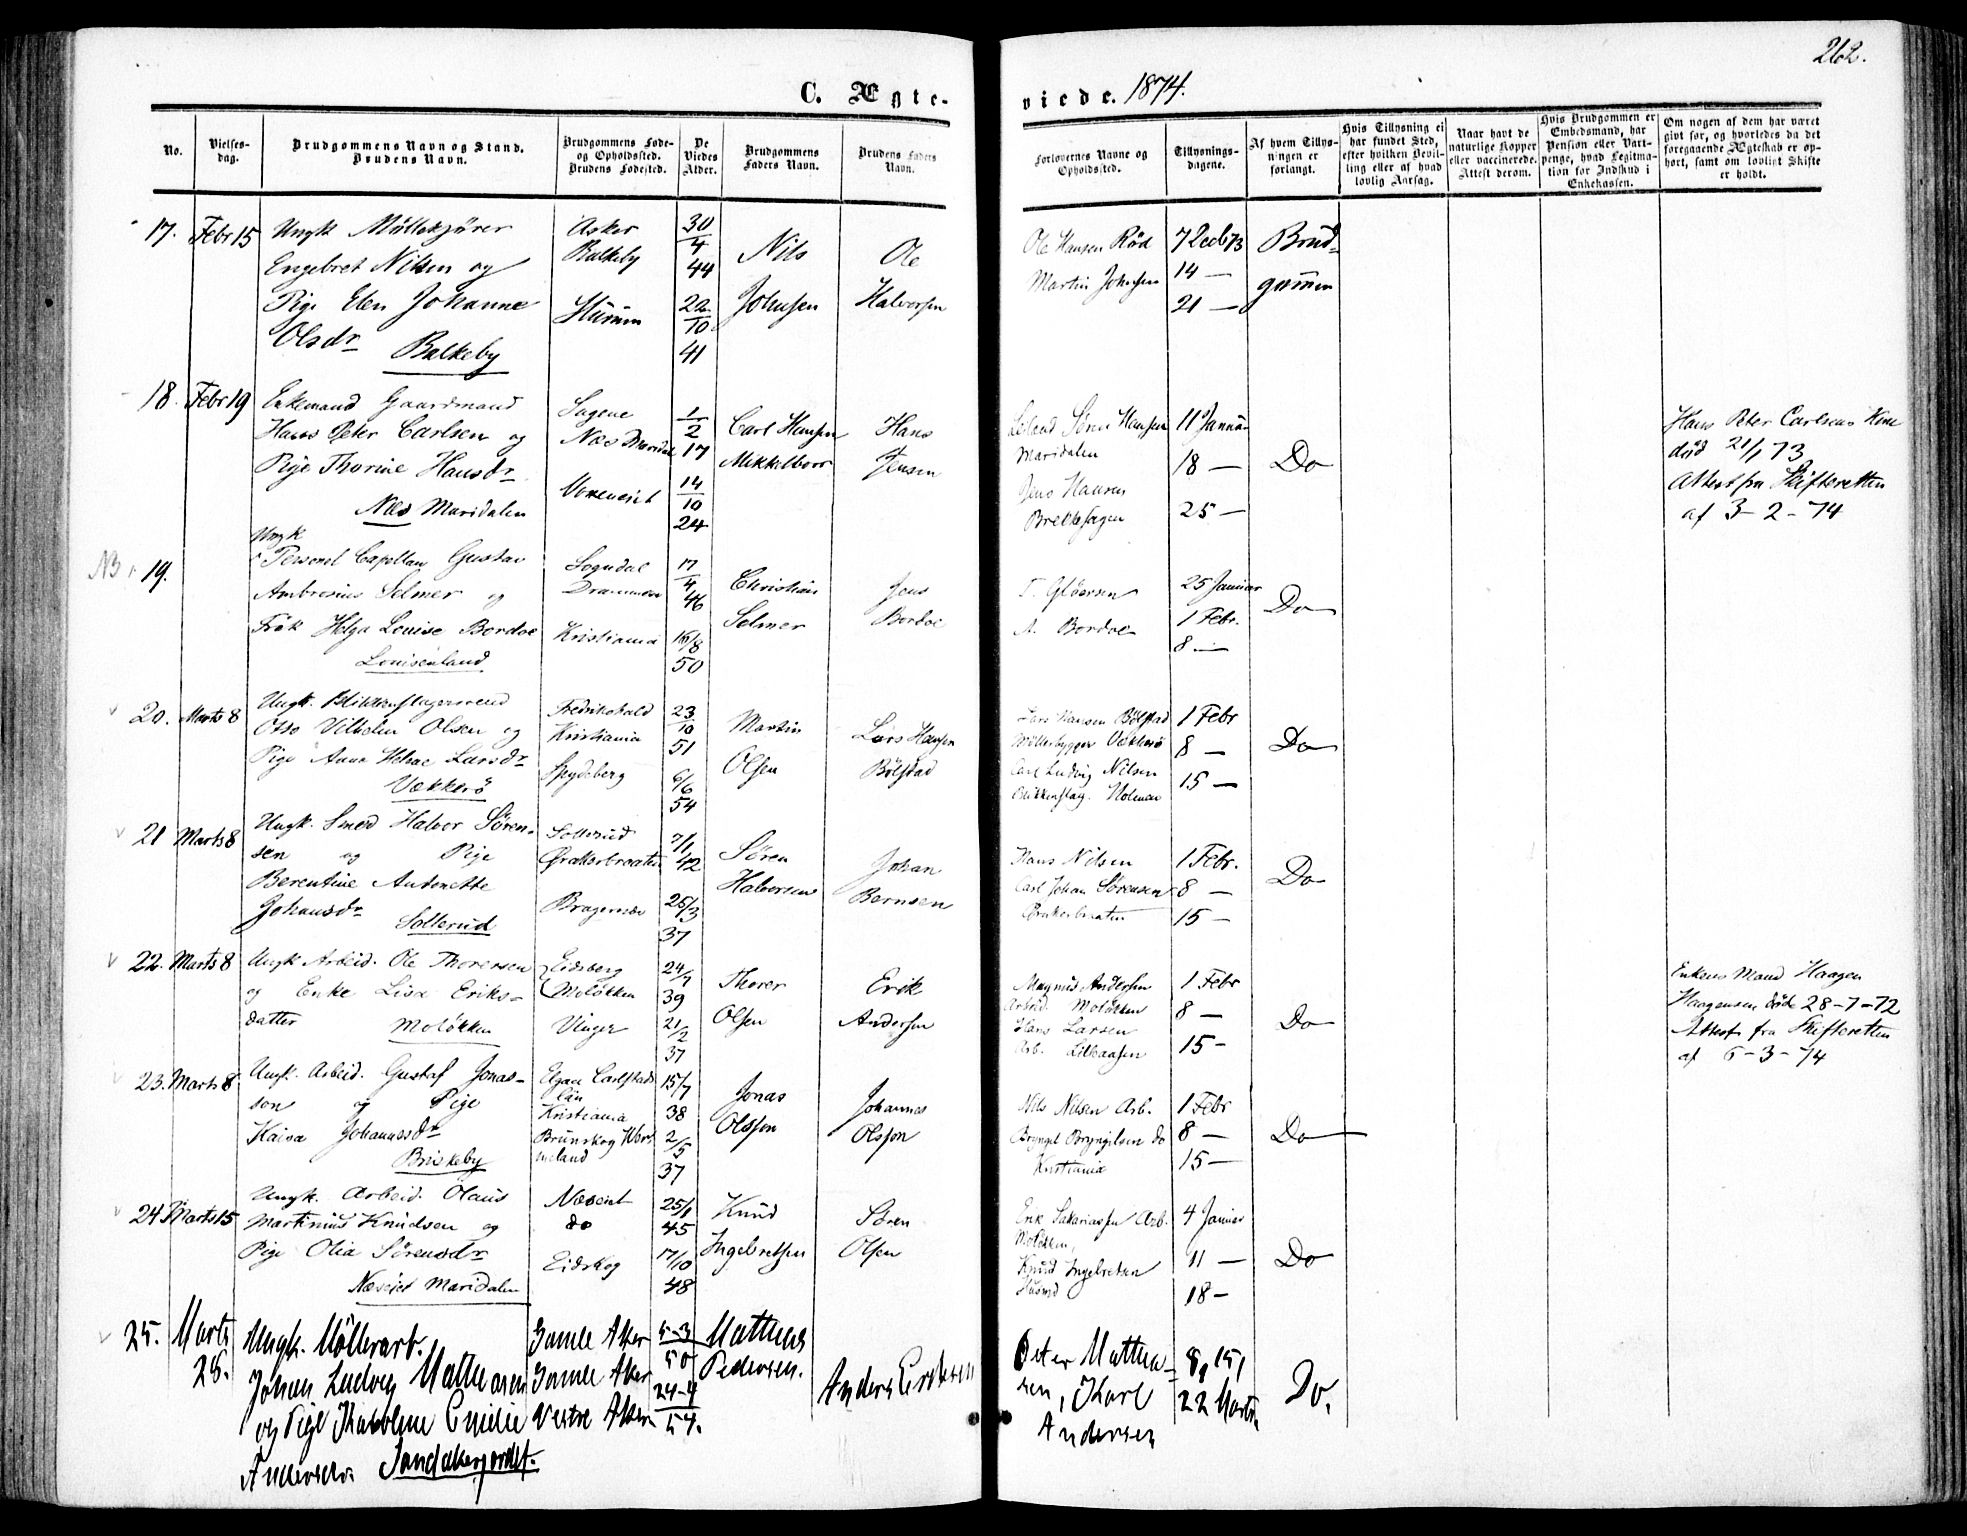 262.
C. Ægte- viede. 1874.
No.
Vielses-
dag.
Brudgommens Navn og Stand.
Brudens Navn.
Brudgommens Føde-
og Opholdssted.
Brudens Fødested.
De
Viedes
Alder.
Brudgommens
Faders Navn.
Brudens Faders
Navn.
Forlovernes Navne og
Opholdssted.
Tillysnings-
dagene.
Af hvem Tillys-
ningen er
forlangt.
Hvis Tillysning ei
har fundet Sted,
efter hvilken Bevil-
ling eller af hvad
lovlig Aarsag.
Naar havt de
naturlige Kopper
eller vaccinerede.
Attest derom.
Hvis Brudgommen er
Embedsmand, har
Pension eller Vart-
penge, hvad Legitima-
tion for Indskud i
Enkekassen.
Om nogen af dem har været
givt før, og hvorledes da det
foregaaende Ægteskab er op-
hørt, samt om lovligt Skifte
er holdt.
17. Febr 15
Ungk Møllekjører
Engebret Nilsen og
Pige Elen Johanne
Olsdr
Balkeby
Asker
Balkeby
Hurum
30
4
44
22
10
41
Nils
Johnsen
Ole
Halvorsen
Ole Hansen Rød
Martin Johnsen
7 Decb 73
14 —
21 —
Brud-
gommen
18. Febr 19
Enkemand Gaardmand
Hans Peter Carlsen og
Pige Thorine Hansdr
Næs Maridalen
Sagene
Næs Maridal
1
2
17
14
10
24
Carl Hansen
Hans
Jensen
Søren Hansen
Maridalen
Jens Hansen
Brekkesagen
11 Januar
18 —
25 —
Do
Hans Peter Carlsens Kone
død 21/1 73
Attest fra Skifteretten
af 3-2-74
NB 19.
Ungk
Personel Capellan Gustav
Ambrosius Selmer og
Frøk Helga Louise Bordoe
Louisenlund
Sogndal
Drammen
Kristiania
17
4
46
16/8
50
Christian
Selmer
Jens
Bordoe
T. Gløersen
A. Bordoe
25 Januar
1 Febr.
8 —
Do
20. Marts 8
Ungk. Blikkenslagersvend
Otto Vilhelm Olsen og
Pige Anna Helene Larsdr
Vækkerö
Fredrikshald
Kristiania
Spydeberg
23
10
51
6/6
54
Martin
Olsen
Lars Hansen
Bölstad
Lars Hansen Bölstad
Möllebygger Vækkerö
Carl Ludvig Nilsen
Blikkenslag. Holmen
1 Febr
8 —
15 —
Do
21 Marts 8
Ungk. Smed Halvor Sören-
sen og Pige
Berentine Antonette
Johansdr
Sollerud
Sollerud
Ørakerbraaten
Bragernæs
7/1
42
25/3
37
Sören
Halvorsen
Johan
Bernsen
Hans Nilsen
Carl Johan Sörensen
Ørakerbraaten
1 Febr.
8 —
15 —
Do
22. Marts 8
Ungk Arbeid. Ole Thoresen
og Enke Lisa Eriks-
datter
Molökken
Eidsberg
Molökken
Vinger
24/7
39
21/2
37
Thorer
Olsen
Erik
Andersen
Magnus Andersen
Arbeid. Molökken
Hans Larsen
Arb. Lilleaasen
1 Febr
8 —
15 —
Do
Enkens Mand Haagen
Haagensen døde 28-7-72
Attest fra Skifteretten
af 6-3-74
23. Marts 8
Ungk. Arbeid. Gustaf Jonas-
son og Pige
Kaisa Johannesdr
Briskeby
Elgaa Carlstads
län
Kristiania
Brunskog Werm
meland
15/7
38
2/5
37
Jonas
Olsson
Johannes
Olsson
Nils Nilsen Arb.
Bryngel Bryngelsen do
Kristiania
1 Febr
8 —
15 —
Do
24 Marts 15
Ungk. Arbeid. Olaus
Martinius Knudsen og
Pige Olia Sörensdr
Næseiet Maridalen
Næseiet
do
Eidskog
25/1
45
17/10
48
Knud
Ingebretsen
Sören
Olsen
Erik Sakariassen Arb.
Molökken,
Knud Ingebretsen
Husmd
4 Januar
11 —
18 —
Do
25. Marts
28.
Ungk. Möllerarb.
Johan Ludvig Mathiasen
og Pige Karoline Emilie
Andersdr. Sandakerjordet.
Gamle Aker
Gamle Aker
Vestre Aker
5-3
50
24-4
54.
Mathias
Pedersen.
Anders Eriksen
Peter Mathia-
sen, Karl
Andersen
8, 15,
22 Marts
Do.